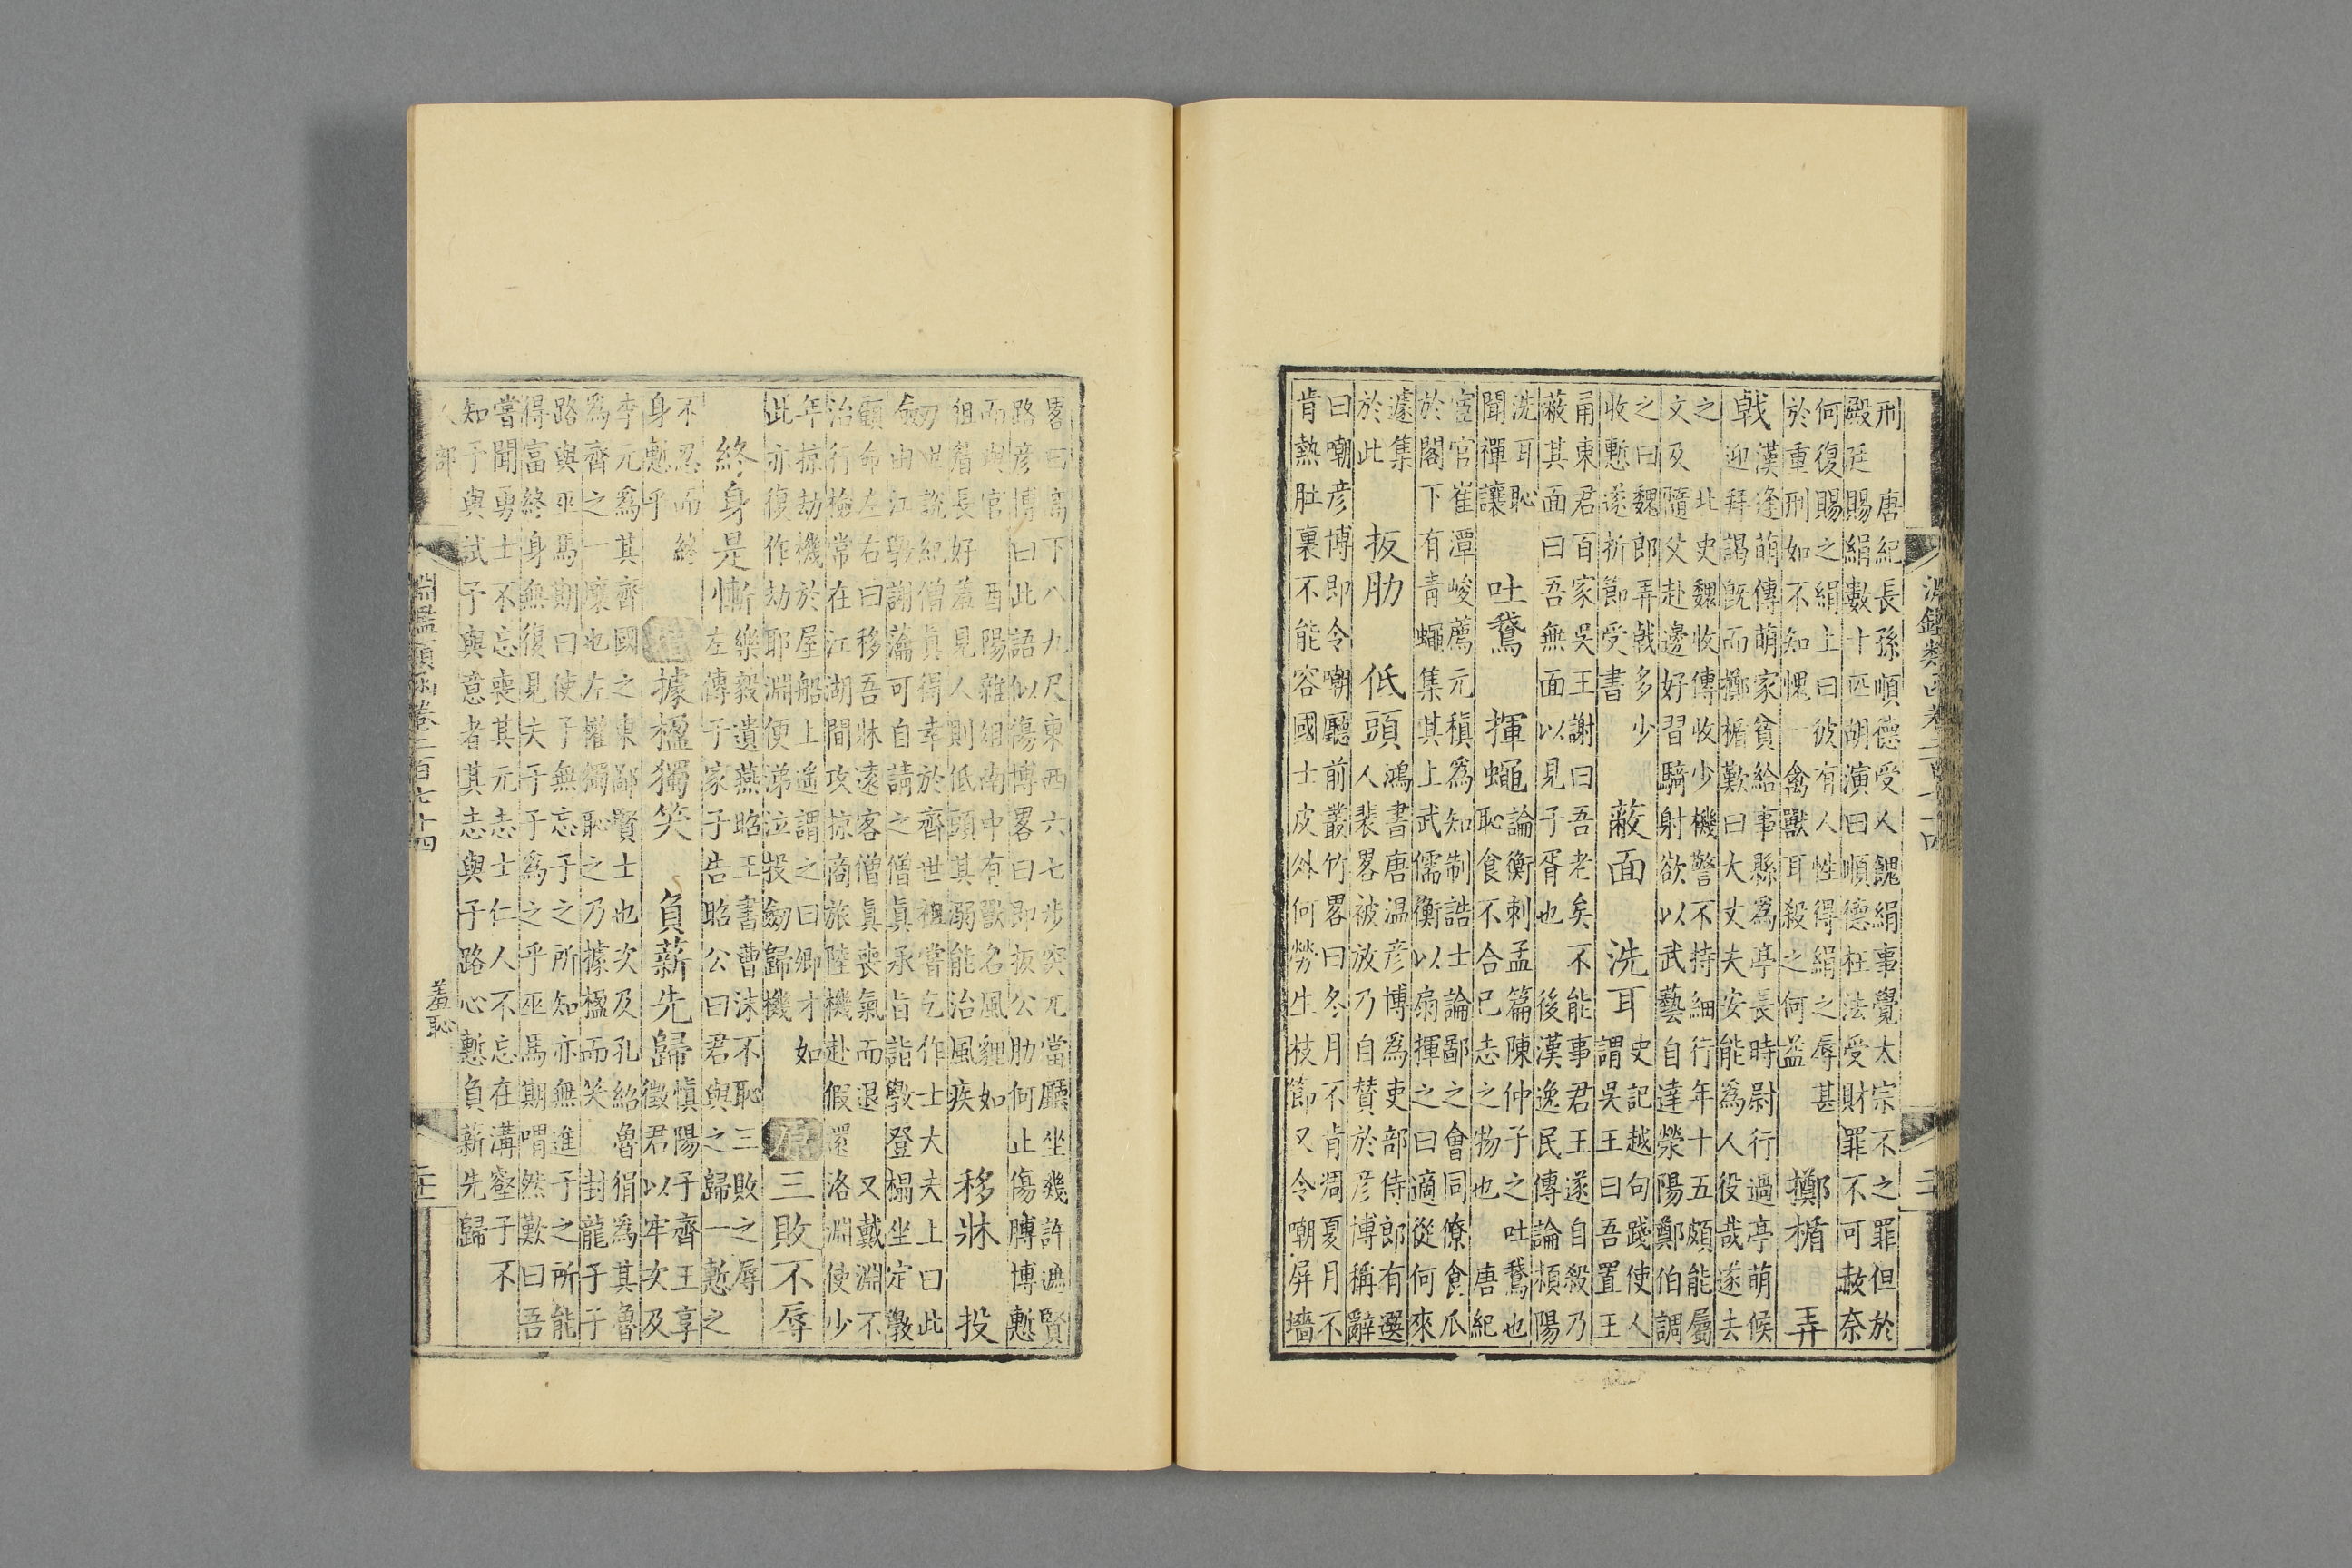 淵鑑類函卷二百七十四
刑 唐紀長孫順德受人餽絹事覺太宗不之罪但於
殿廷賜絹數十匹胡演曰順德枉法受財罪不可赦奈
何復賜之絹上曰彼有人性得絹之辱甚
於重刑如不知愧一禽獸耳殺之何益
擲楯 弄
戟
漢逢萌傳萌家貧給事縣爲亭長時尉行過亭萌候
迎拜謁旣而擲楯歎曰大丈夫安能爲人役哉遂去
之 北史魏收傳收少機警不持細行年十五頗能屬
文及隨父赴邊好習騎射欲以武藝自達滎陽鄭伯調
之曰魏郎弄戟多少
收慙遂折節受書
蔽面 洗耳
史記越句踐使人
謂吳王曰吾置王
甬東君百家吳王謝曰吾老矣不能事君王遂自殺乃
蔽其面曰吾無面以見子胥也 後漢逸民傳論潁陽
洗耳恥
聞禪讓
吐鵞 揮蠅
論衡刺孟篇陳仲子之吐鵞也
恥食不合已志之物也 唐紀
宦官崔潭峻薦元稹爲知制誥士論鄙之會同僚食瓜
於閣下有青蠅集其上武儒衡以扇揮之曰適從何來
遽集
於此
扳肋 低頭
鴻書唐温彥博爲吏部侍郎有選
人裴畧被放乃自贊於彥博稱辭
曰嘲彥博即令嘲廳前叢竹畧曰冬月不肯凋夏月不
肯熱肚裏不能容國士皮外何勞生枝節又令嘲屏墻
畧曰高下八九尺東西六七步突兀當廳坐幾許遮賢
路彥博曰此語似傷博畧曰即扳公肋何止傷膊博慙
而與官 酉陽雜俎南中有獸名風貍如
狙眉長好羞見人則低頭其溺能治風疾
移牀 投
劒
世說紀僧眞得幸於齊世祖嘗乞作士大夫上曰此
由江斆謝瀹可自請之僧眞承旨詣斆登榻坐定斆
顧命左右曰移吾牀遠客僧眞喪氣而退 又戴淵不
治行檢常在江湖間攻掠商旅陸機赴假還洛淵使少
年掠劫機於屋船上遙謂之曰卿才如
此亦復作劫耶淵便涕泣投劒歸機
原 三敗不辱
終身是慚
樂毅遺燕昭王書曹沫不恥三敗之辱
左傳子家子告昭公曰君與之歸一慙之
不忍而終
身慙乎
增 據楹獨笑 負薪先歸
慎陽子齊王享
徵君以牢次及
李元爲其齊國之東鄙賢士也次及孔紹魯狷爲其魯
爲齊之一壤也左權獨恥之乃據楹而笑 封龍子子
路與巫馬期曰使子無忘子之所知亦無進子之所能
得富終身無復見夫子子爲之乎巫馬期喟然歎曰吾
嘗聞勇士不忘喪其元志士仁人不忘在溝壑子不
知予與試予與意者其志與子路心慙負薪先歸
人部
淵鑑類函卷二百七十四
羞恥